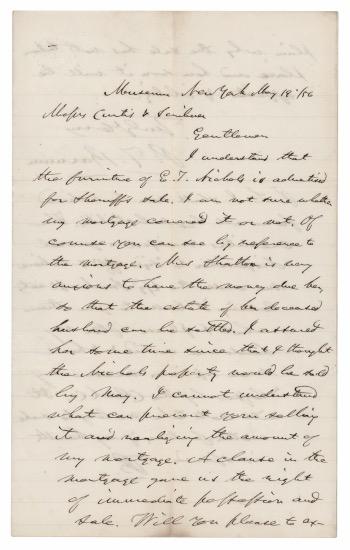 Museum New York May 19/56
Messrs Curtis & Scribner
Gentlemen
I understand that
the furniture of E. T. Nichols is advertised
for Sheriff's sale. I am not sure whether
my mortgage covered it or not. Of
course you can see by reference to
the mortgage. Mrs Stratton is very
anxious to have the money due her,
so that the estate of her deceased
husband can be settled. I assured
her some time since that I thought
the Nichols property would be sold
by May. I cannot understand
what can prevent your selling
it and realizing the amount of
my mortgage. A clause in the
mortgage gave us the right
of immediate possession and
sale. Will you please to ex-